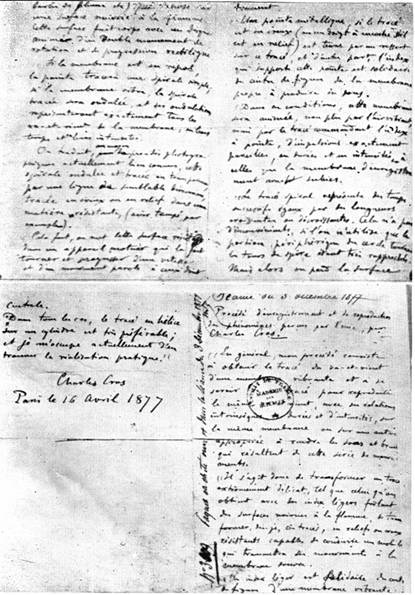 barbe de plume, etc.) qui repose sur
une surface noircie à la flamme
Cette surface fait corps avec un disque
animé d'un double mouvement de
rotation et de progression rectiligne
Si la membrane est en repos,
la pointe tracera une spirale simple,
si la membrane vibre, la spirale
tracée sera ondulée, et ses ondulations
représenteront exactement tous les
va-et-vient de la membrane, en leurs
temps et leurs intensités.
On traduit, procédés photogra-
phiques actuellement bien connus, cette
spirale ondulée et tracée en transparence
par une ligne de semblables dimensions
tracée en creux ou en relief dans une
matière résistante, (acier trempé par
exemple).
Cela fait, on met cette surface
dans un appareil moteur qui la fait
tourner et progresser d'une vitesse
et d'un mouvement pareils à ceux dont
Une pointe métallique, si le tracé
est en creux (ou un doigt à encoche s'il
est en relief) est tenue par un ressort
sur ce tracé, et d'autre part l'index
qui supporte cette pointe est solidaire
du centre de figure de la membrane
propre à produire des sons.
Dans ces conditions, cette membrane
sera animée, non plus par l'air vibrant
mais par le tracé commandant l'index
à pointe, d'impulsions exactement
pareilles, en durées et en intensités, à
celles que la membrane d'enregistrement
avait subies.
Le tracé spiral représente des temps
successifs égaux par des longueurs
croissantes ou décroissantes. Cela n'a pas
d'inconvénients, si l'on n'utilise que la
portion périphérique du cercle
les tours de spire étant très rapprochés
Mais alors on perd la surface
centrale.
Dans tous les cas, le tracé en hélice
sur un cylindre est très préférable;
et je m'occupe actuellement d'en
trouver la réalisation pratique.
Charles Cros
Paris le 16 Avril 1877
Séance du 3 décembre 1877
Procédé d'enregistrement et de reproduction
des phénomènes perçus par l'ouïe, par
Charles Cros.
En général, mon procédé consiste
à obtenir le tracé du va-et-vient
d'une membrane vibrante et à se
servir de ce tracé pour reproduire
le même va-et-vient avec ses relations
intrinsèques de durées et d'intensités, sur
la même membrane ou sur une autre
appropriée à rendre les sons et bruits
qui résultent de cette série de mouve-
ments.
Il s'agit donc de transformer un tracé
extrêmement délicat, tel que celui qu'on
obtient avec des index légers frôlant
des surfaces noircies à la flamme, de trans-
former, dis-je, ces tracés, en reliefs ou creux
résistants capables de conduire un mobile
qui transmettra ses mouvements à la
membrane sonore.
Un index léger est solidaire du centre
de figure d'une membrane vibrante